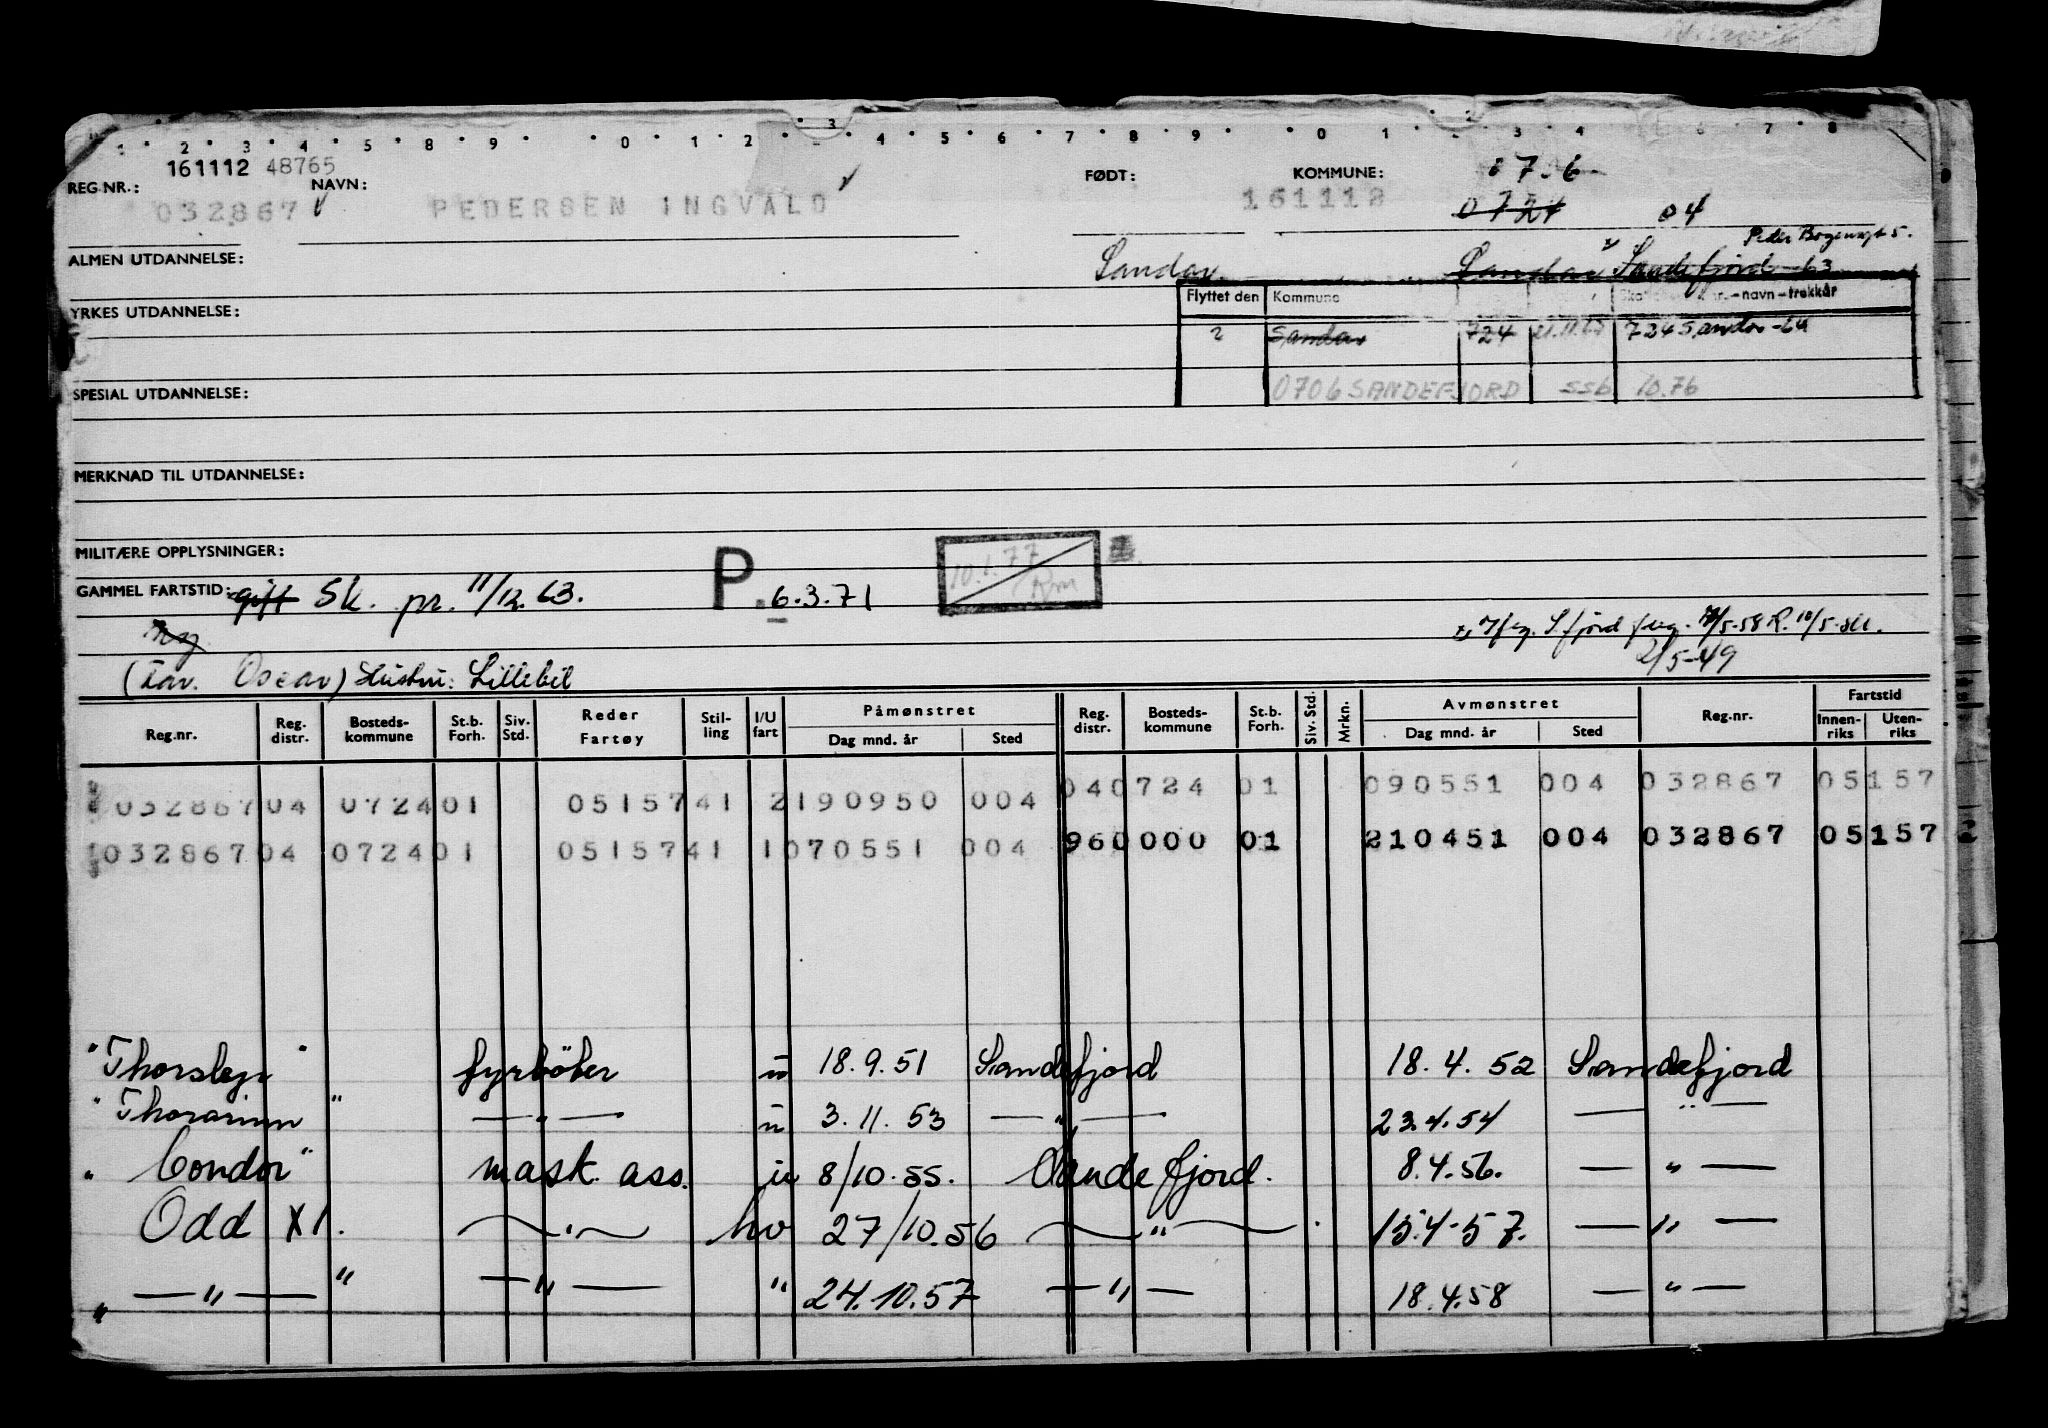 1 2 3 4 5 8 9 0 1 2 3 4 5 6 7 8 9 0 1 2 3 4 6 7 8
161112 48765
REG.NR.: NAVN: FØDT: KOMMUNE: 0724
032867 PEDERSEN INGVALD 161112 04
Peder Bogensgt 5.
ALMEN UTDANNELSE: Sandar Sandar Sandefjord -63
Flyttet den Kommune -navn-trekkår
YRKES UTDANNELSE:
2 Sandar 724 21.11.67 724 Sandar -64
SPESIAL UTDANNELSE: 0706 SANDEFJORD SSB 10.76
MERKNAD TIL UTDANNELSE:
MILITÆRE OPPLYSNINGER:
GAMMEL FARTSTID: gift Sk. pr. 11/12.63. P. 6.3.71 10.1.77 Rm
2/5-49
(Far. Oscar) Hustru: Lillebil
Reg.nr. Reg. distr. Bosteds-kommune St.b. Forh. Siv. Std. Reder Fartøy Stil-ling I/U fart Påmønstret Dag mnd. år Sted Reg. distr. Bosteds-kommune St.b. Forh. Siv. Std. Mrkn. Avmønstret Dag mnd. år Sted Reg.nr. Fartstid Innen-riks Uten-riks
032867 04 0724 01 05157 41 2 190950 004 04 0724 01 090551 004 032867 05157
032867 04 0724 01 05157 41 1 070551 004 960000 01 210451 004 032867 05157 2
"Thorslep" fyrbøter u 18.9.51 Sandefjord 18.4.52 Sandefjord
"Thorarinn" — " — u 3.11.53 — " — 23.4.54 — " —
"Condor" mask. ass. u 8/10.55. Sandefjord. 8.4.56. — " —
Odd XI. — " — hv 27/10.56 — " — . 15.4-57. — " —
— " — " — " — " 24.10.57 — " — 18.4.58 — " —